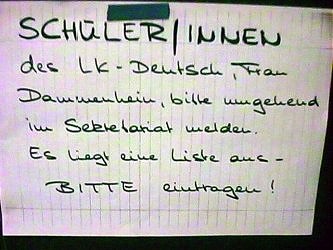 SCHÜLER/INNEN
des LK-Deutsch, Frau
Dammenhein, bitte umgehend
im Sekretariat melden.
Es liegt eine Liste aus -
BITTE eintragen!